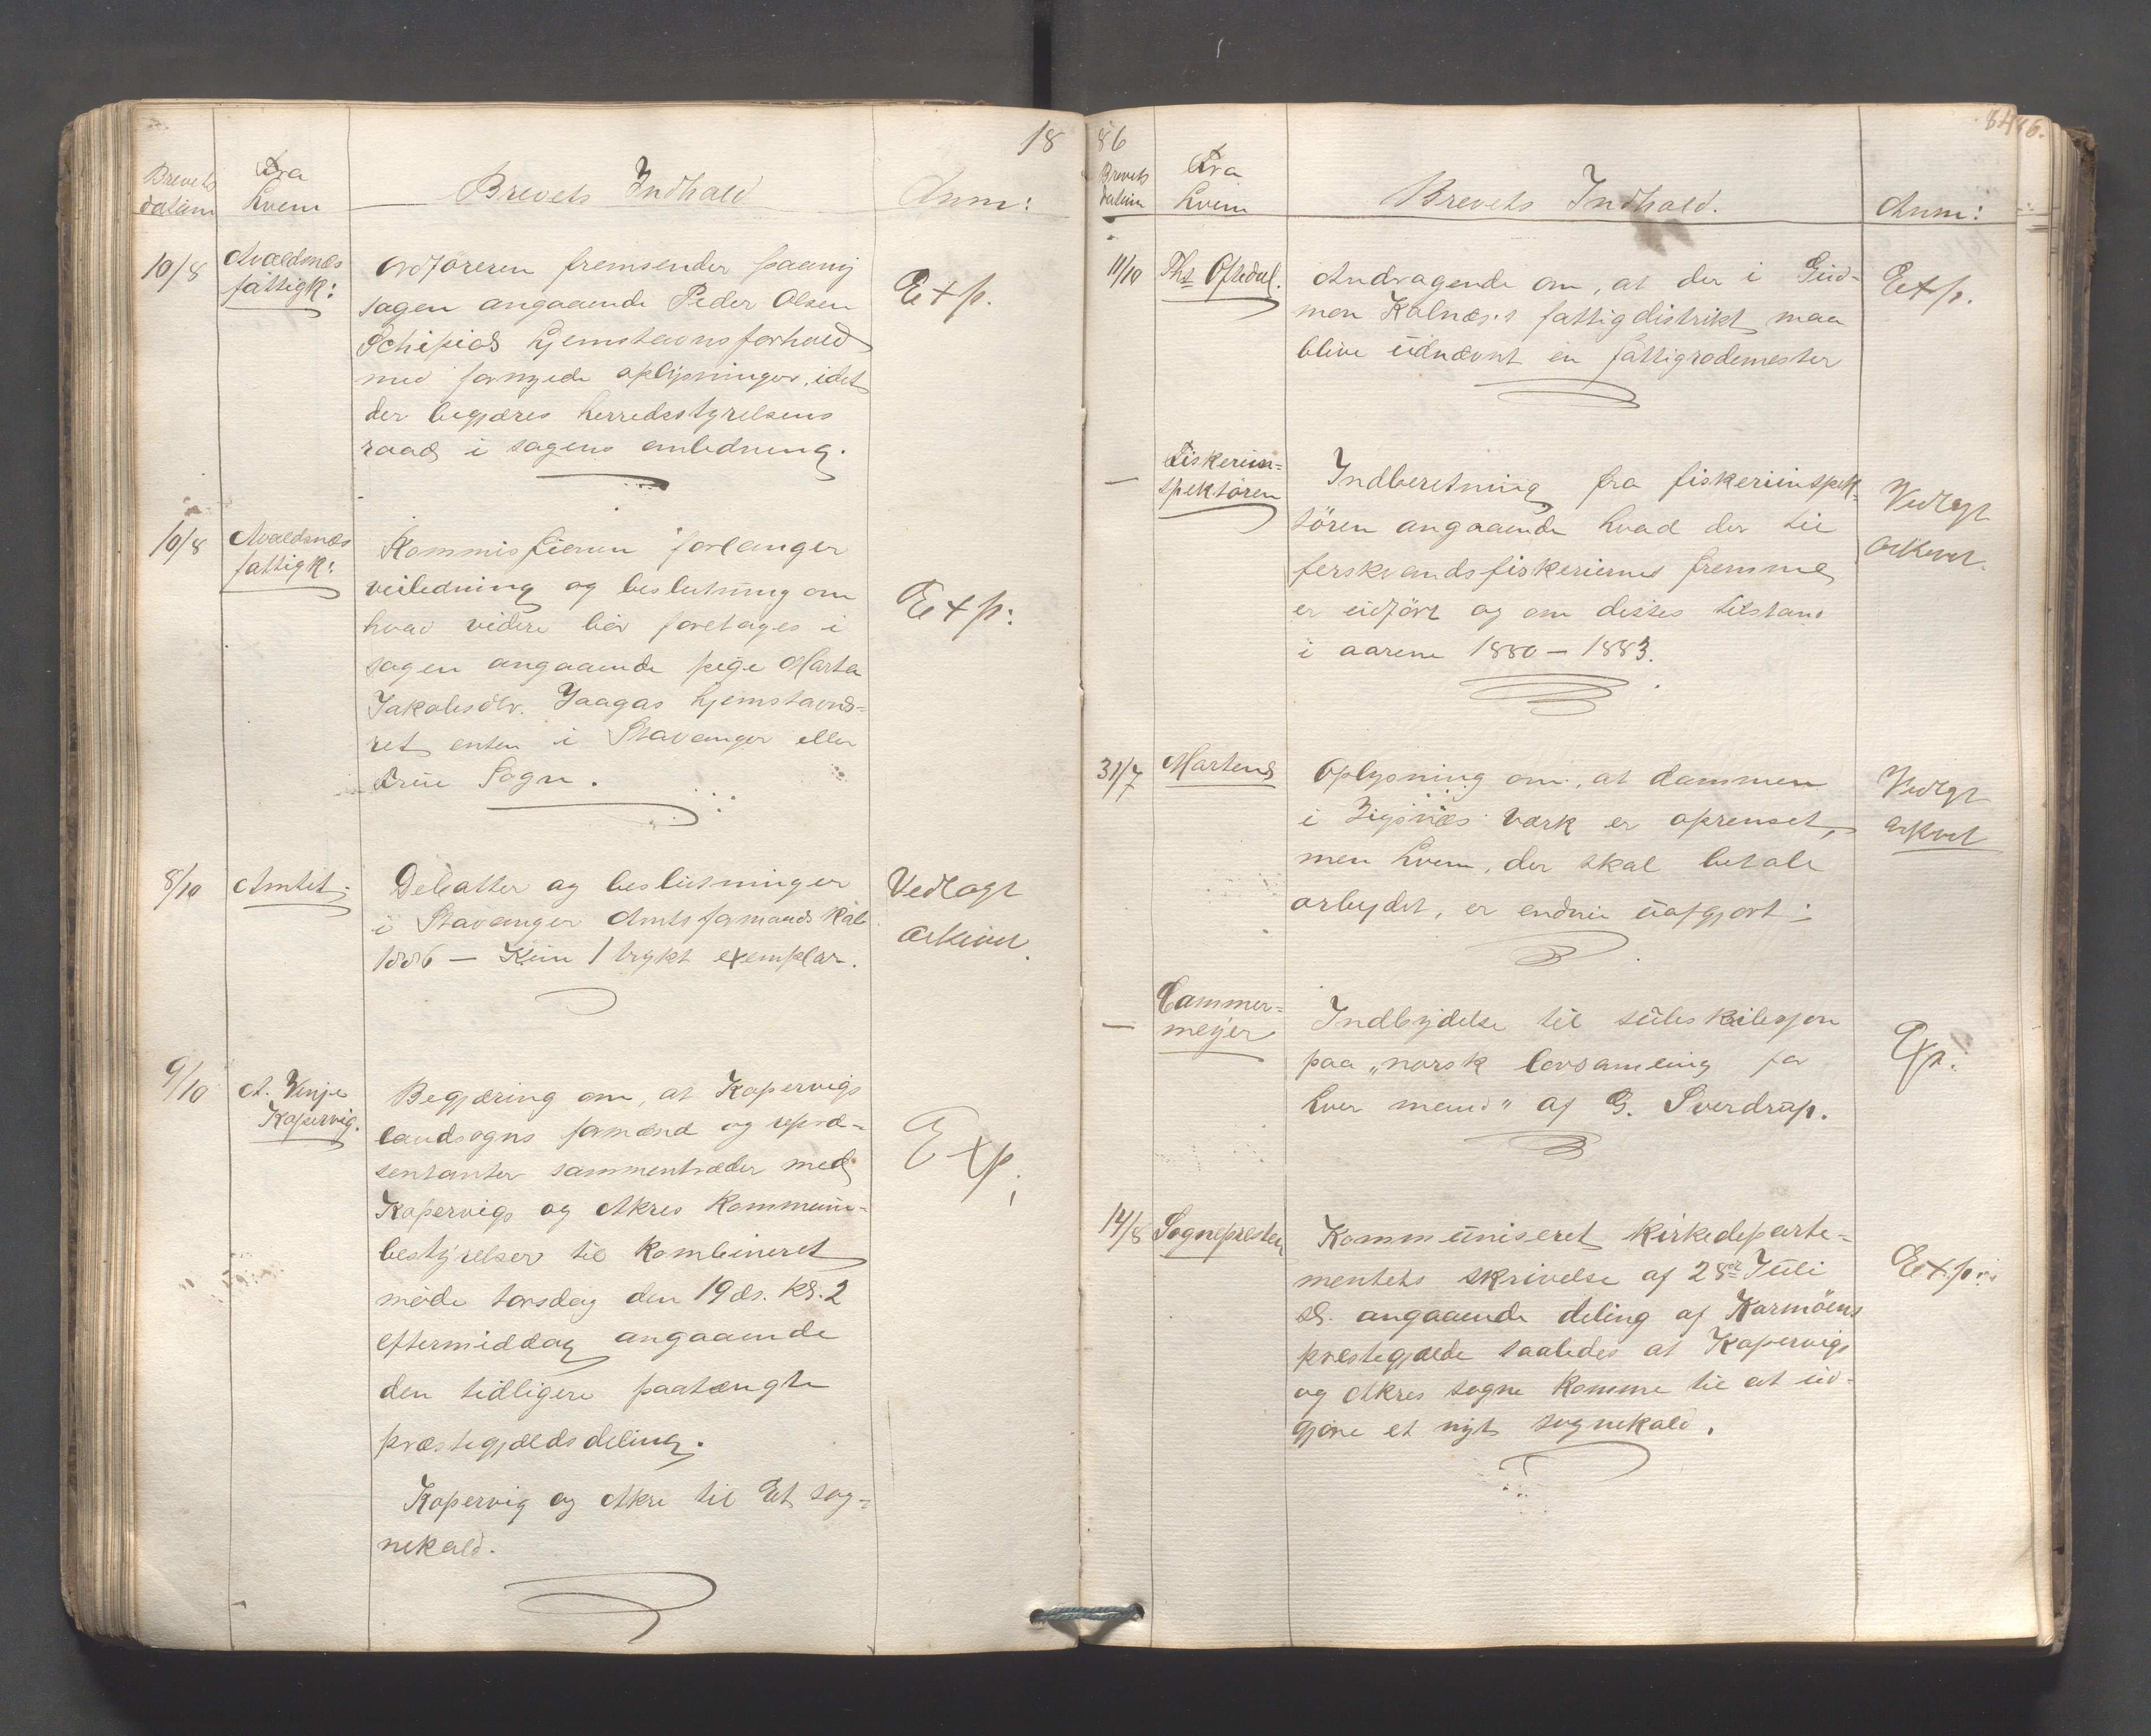 18
Brevets datum
Fra Hvem
Brevets Indhold
Anm:
10/8
Avaldsnes
fattigk:
Ordføreren fremsender paany
sagen angaaende Peder Olsen
hjemstavnsforhold
med fornyede oplysninger, idet
der begjæres herredsstyrelsens
raad i sagens anledning.
Exp.
10/8
Avaldsnæs
fattigk:
Kommissionen forlanger
veiledning og beslutning om
hvad videre bør foretages i
sagen angaaende pige Marta
Jakobsdtr. Haagas hjemstavns-
ret enten i Stavanger eller
Frue Sogn.
Exp:
8/10
Amtet
Debatter og beslutninger
i Stavanger Amtsformandskab
1886 — Kun 1 trykt exemplar.
Vedlagt
arkivet.
9/10
A. Vinje
Kopervig.
Begjæring om, at Kopervigs
landsogns formænd og repræ-
sentanter sammentræder med
Kopervigs og Akres Kommune-
bestyrelser til kombineret
møde torsdag den 19 ds. kl. 2
eftermiddag angaaende
den tidligere paatængte
præstegjældsdeling.
Kopervig og Akre til Et sog-
nekald.
Exp.
86
84
86.
Brevets datum
Fra Hvem
Brevets Indhold.
Anm:
11/10
Ths Oftedal.
Andragende om, at der i Gud-
mon Kolnæs's fattigdistrikt maa
blive udnævnt en fattigrodemester
Exp.
—
Fiskeriin-
spektøren
Indberetning fra fiskeriinspek-
tøren angaaende hvad der til
ferskvandsfiskeriernes fremme
er udført og om disses tilstand
i aarene 1880 — 1883.
Vedlagt
arkivet.
31/7
Martens
Oplysning om, at dammen
i Vigsnæs Værk er oprenset,
men hvem, der skal betale
arbeydet, er endnu uafgjort.
Vedlgt
arkivet
—
Cammer-
meyer
Indbydelse til subskribsjon
paa „norsk lovsamling for
hver mand" af G. Sverdrup.
Exp.
14/8
Sognepresten
Kommuniseret kirkedeparte-
mentets skrivelse af 28de Juli
ds. angaaende deling af Karmöens
prestegjælde saaledes at Kopervigs
og Akres sogne komme til at ud-
gjøre et nyt sognekald.
Exp: